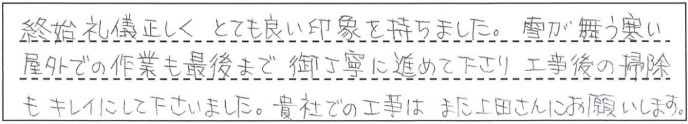 終始礼儀正しく とても良い印象を持ちました。 雪が舞う寒い
屋外での作業も最後まで 御丁寧に進めて下さり 工事後の掃除
も キレイにして下さいました。貴社での工事は また上田さんにお願いします。